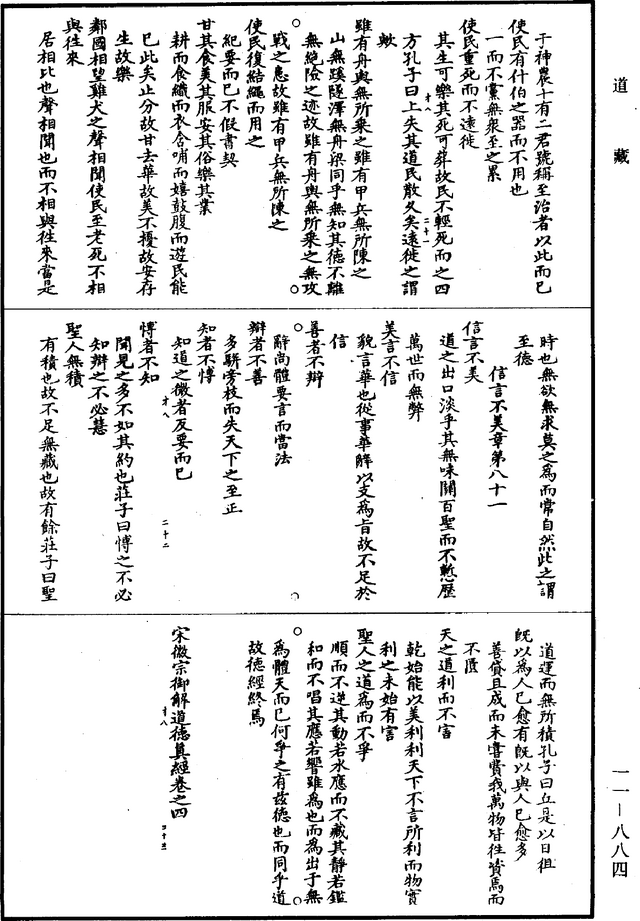 道藏
于神農十有二君號稱至治者以此而已
使民有什伯之器而不用也
一而不黨無衆至之累
使民重死而不遠徙
其生可樂其死可葬故民不輕死而之四
方孔子曰上失其道民散久矣遠徙之謂
歟
雖有舟輿無所乘之雖有甲兵無所陳之
山無蹊隧澤無舟梁同乎無知其德不離
無絕險之迹故雖有舟輿無所乘之無攻
戰之患故雖有甲兵無所陳之
使民復結繩而用之
紀要而已不假書契
甘其食美其服安其俗樂其業
耕而食織而衣含哺而嬉鼓腹而遊民能
已此矣止分故甘去華故美不擾故安存
生故樂
鄰國相望雞犬之聲相聞使民至老死不相
與往來
居相比也聲相聞也而不相與往來當是
時也無欲無求莫之為而常自然此之謂
至德
信言不美章第八十一
信言不美
道之出口淡乎其無味關百聖而不慙歷
萬世而無弊
美言不信
貌言華也從事華辭以支為旨故不足於
信
善者不辯
辭尚體要言而當法
辯者不善
多駢旁枝而失天下之至正
知者不愽
知道之微者反要而已
愽者不知
聞見之多不如其約也莊子曰愽之不必
知辯之不必慧
聖人無積
有積也故不足無藏也故有餘莊子曰聖
道運而無所積孔子曰丘是以日徂
既以為人已愈有既以與人已愈多
善貸且成而未嘗費我萬物皆往資焉而
不匱
天之道利而不害
乾始能以美利利天下不言所利而物實
利之未始有害
聖人之道為而不爭
順而不逆其動若水應而不藏其靜若鑑
和而不唱其應若響雖為也而為出于無
為體天而已何爭之有茲德也而同乎道
故德經終焉
宋徽宗御解道德真經卷之四
一一—八八四